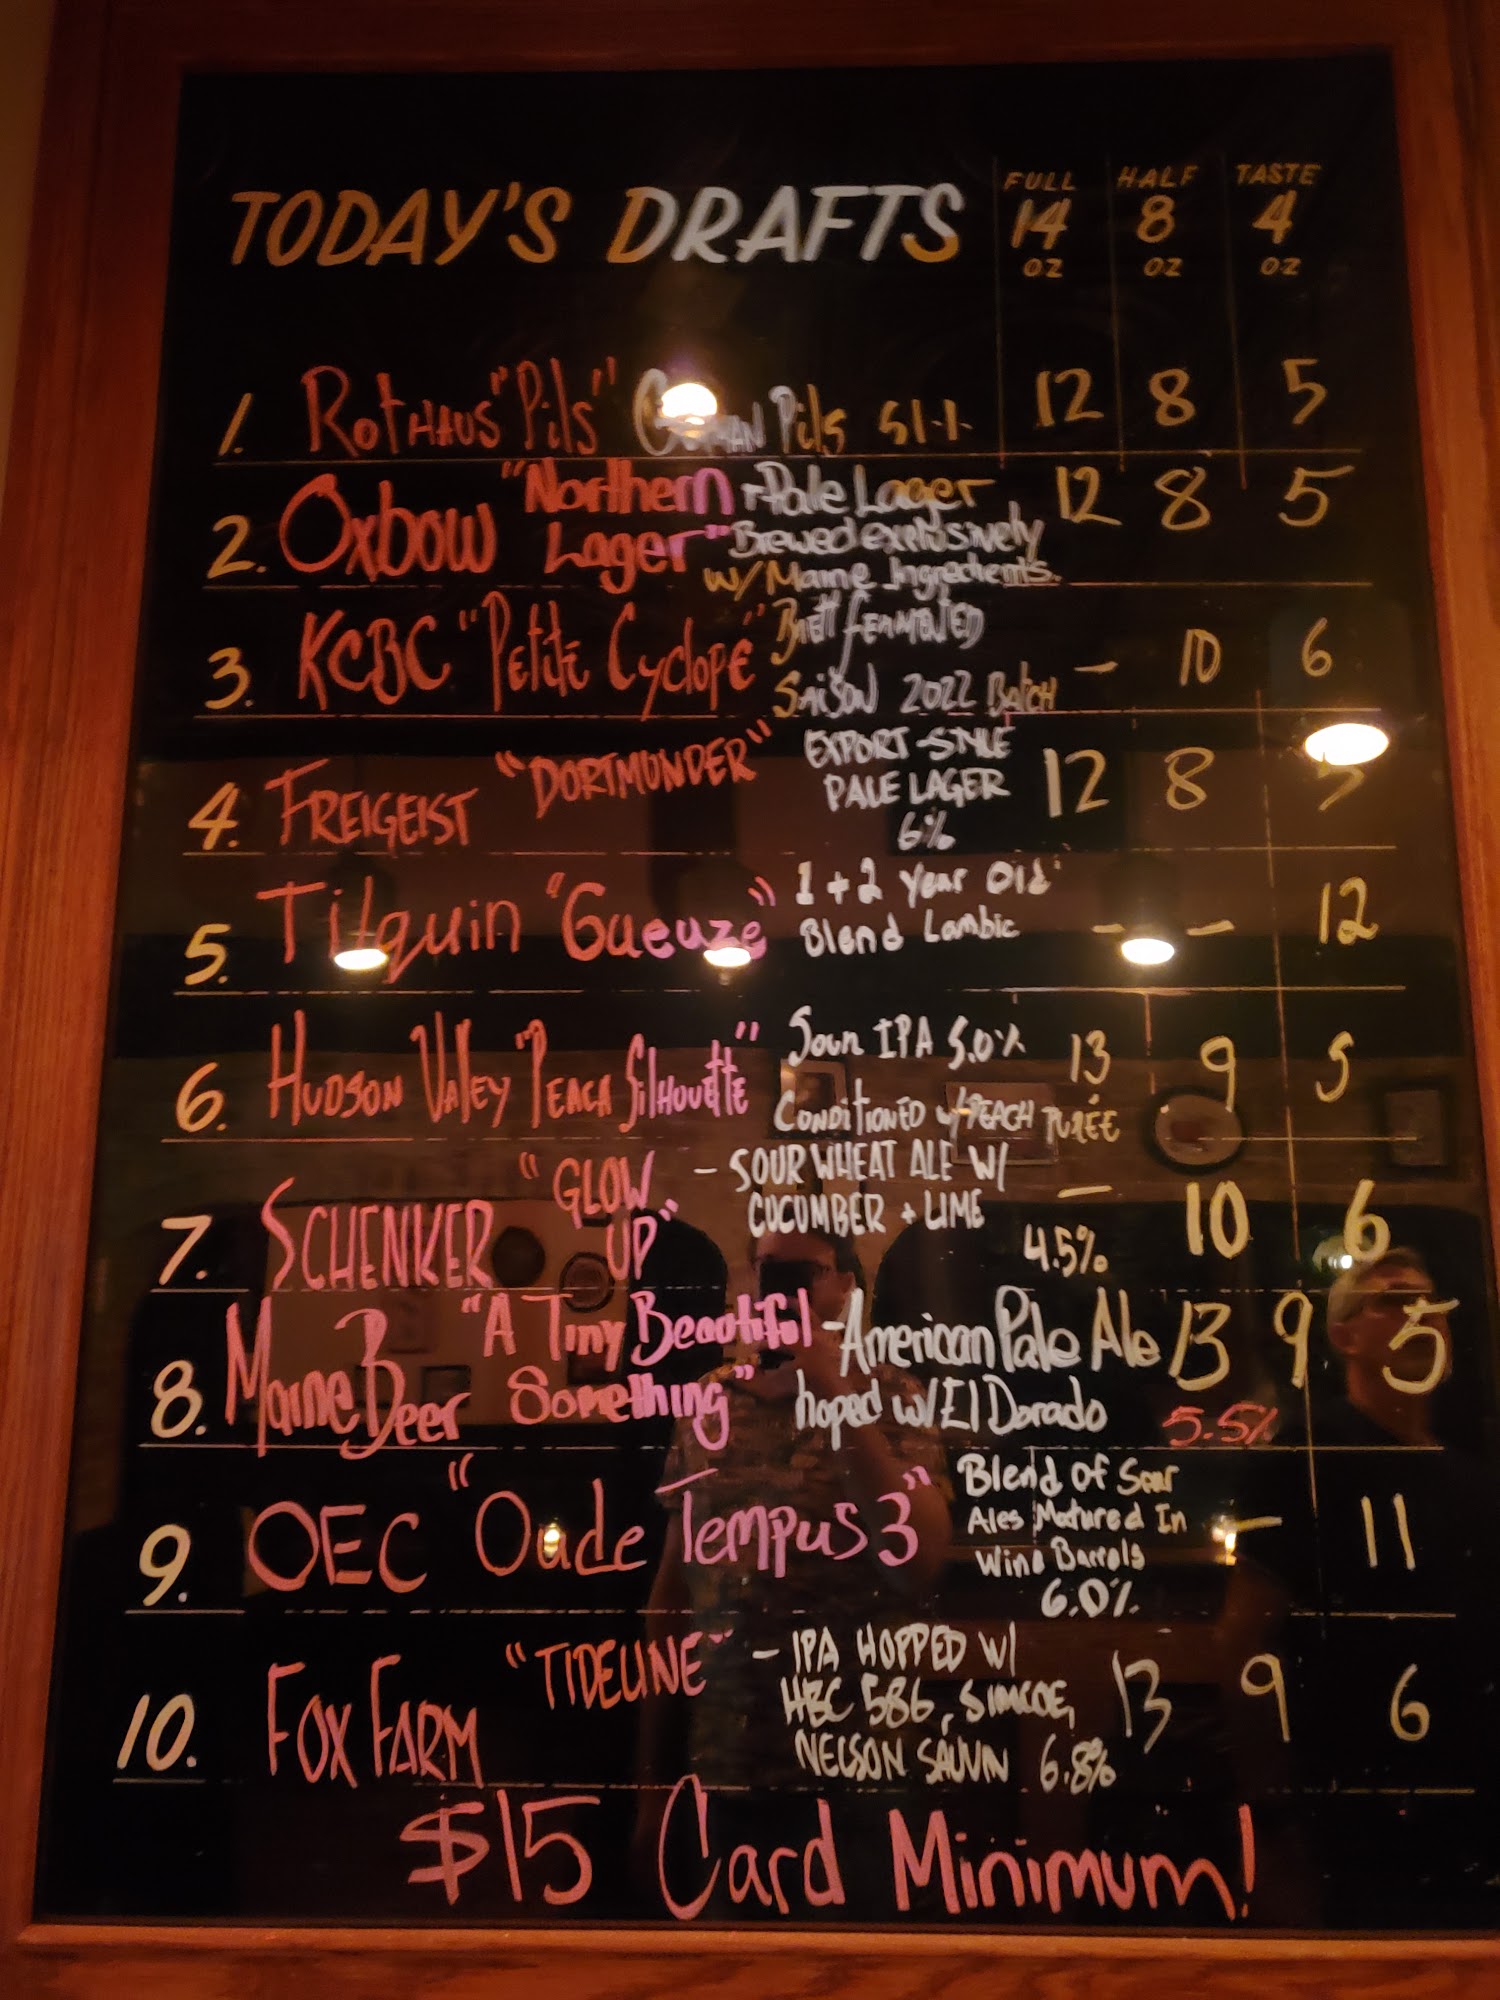 TODAY'S DRAFTS
FULL HALF TASTE
14 8 4
OZ OZ OZ
1. Rothaus "Pils" German Pils 5.1% 12 8 5
2. Oxbow "Northern Lager" - Pale Lager 12 8 5
Brewed exclusively
w/ Maine Ingredients.
3. KCBC "Petite Cyclope" Brett fermented
Saison 2022 Batch - 10 6
4. FREIGEIST "DORTMUNDER" EXPORT-STYLE
PALE LAGER 12 8 5
6%
5. Tilquin "Gueuze" 1 + 2 Year Old
Blend Lambic - - 12
6. HUDSON VALLEY "PEACH SILHOUETTE" Sour IPA 5.0% 13 9 5
CONDITIONED w/ PEACH PURÉE
7. SCHENKER "GLOW UP" - SOUR WHEAT ALE W/
CUCUMBER + LIME - 10 6
4.5%
8. Maine Beer "A Tiny Beautiful Something" - American Pale Ale 13 9 5
hoped w/ El Dorado 5.5%
9. OEC "Oude Tempus 3" Blend Of Sour
Ales Matured In - 11
Wine Barrels
6.0%
10. FOX FARM "TIDELINE" - IPA HOPPED W/
HBC 586, SIMCOE, 13 9 6
NELSON SAUVIN 6.8%
$15 Card Minimum!